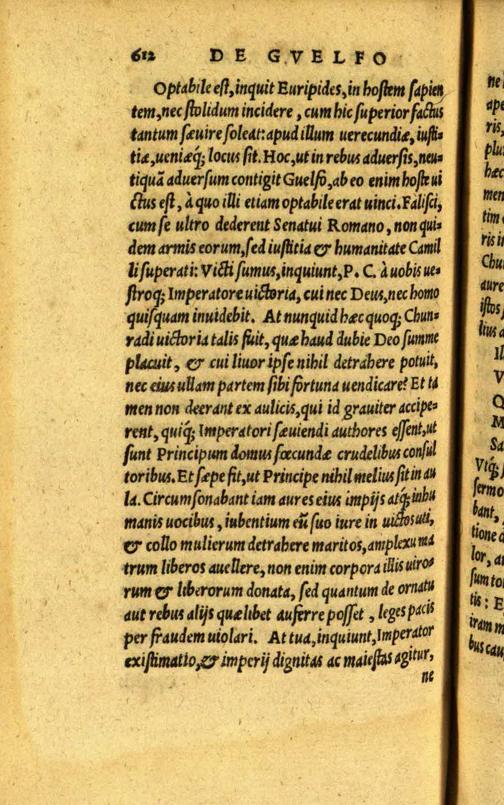 612 DE GVELFO
Optabile est, inquit Euripides, in hostem sapien
tem, nec stolidum incidere, cum hic superior factus
tantum sæuire soleat: apud illum uerecundiæ, iusti-
tiæ, ueniæq́; locus sit. Hoc, ut in rebus aduersis, neu-
tiquā aduersum contigit Guelfo, ab eo enim hoste ui
ctus est, à quo illi etiam optabile erat uinci. Falisci,
cum se ultro dederent Senatui Romano, non qui-
dem armis eorum, sed iustitia & humanitate Camil
li superati: Victi sumus, inquiunt, P. C. à uobis ue-
stroq; Imperatore uictoria, cui nec Deus, nec homo
quisquam inuidebit. At nunquid hæc quoq; Chun-
radi uictoria talis fuit, quæ haud dubie Deo summe
placuit, & cui liuor ipse nihil detrahere potuit,
nec eius ullam partem sibi fortuna uendicare? Et ta
men non deerant ex aulicis, qui id grauiter accipe-
rent, quiq́; Imperatori sæuiendi authores essent, ut
sunt Principum domus fœcundæ crudelibus consul
toribus. Et sæpe fit, ut Principe nihil melius sit in au
la. Circumsonabant iam aures eius impijs atq́; inhu
manis uocibus, iubentium eū suo iure in uictos uti,
& collo mulierum detrahere maritos, amplexu ma
trum liberos auellere, non enim corpora illis uiro-
rum & liberorum donata, sed quantum de ornatu
aut rebus alijs quælibet auferre posset, leges pacis
per fraudem uiolari. At tua, inquiunt, Imperator
existimatio, & imperij dignitas ac maiestas agitur,
ne
ne
ape
ris,
plu
hæc
men
tim
ris i
Chu
aure
istos
lius
Il
V
Q
M
Sa
Vtq́;
sermo
bant,
tione
lor, a
sum to
tis: E
iram m
bus cau